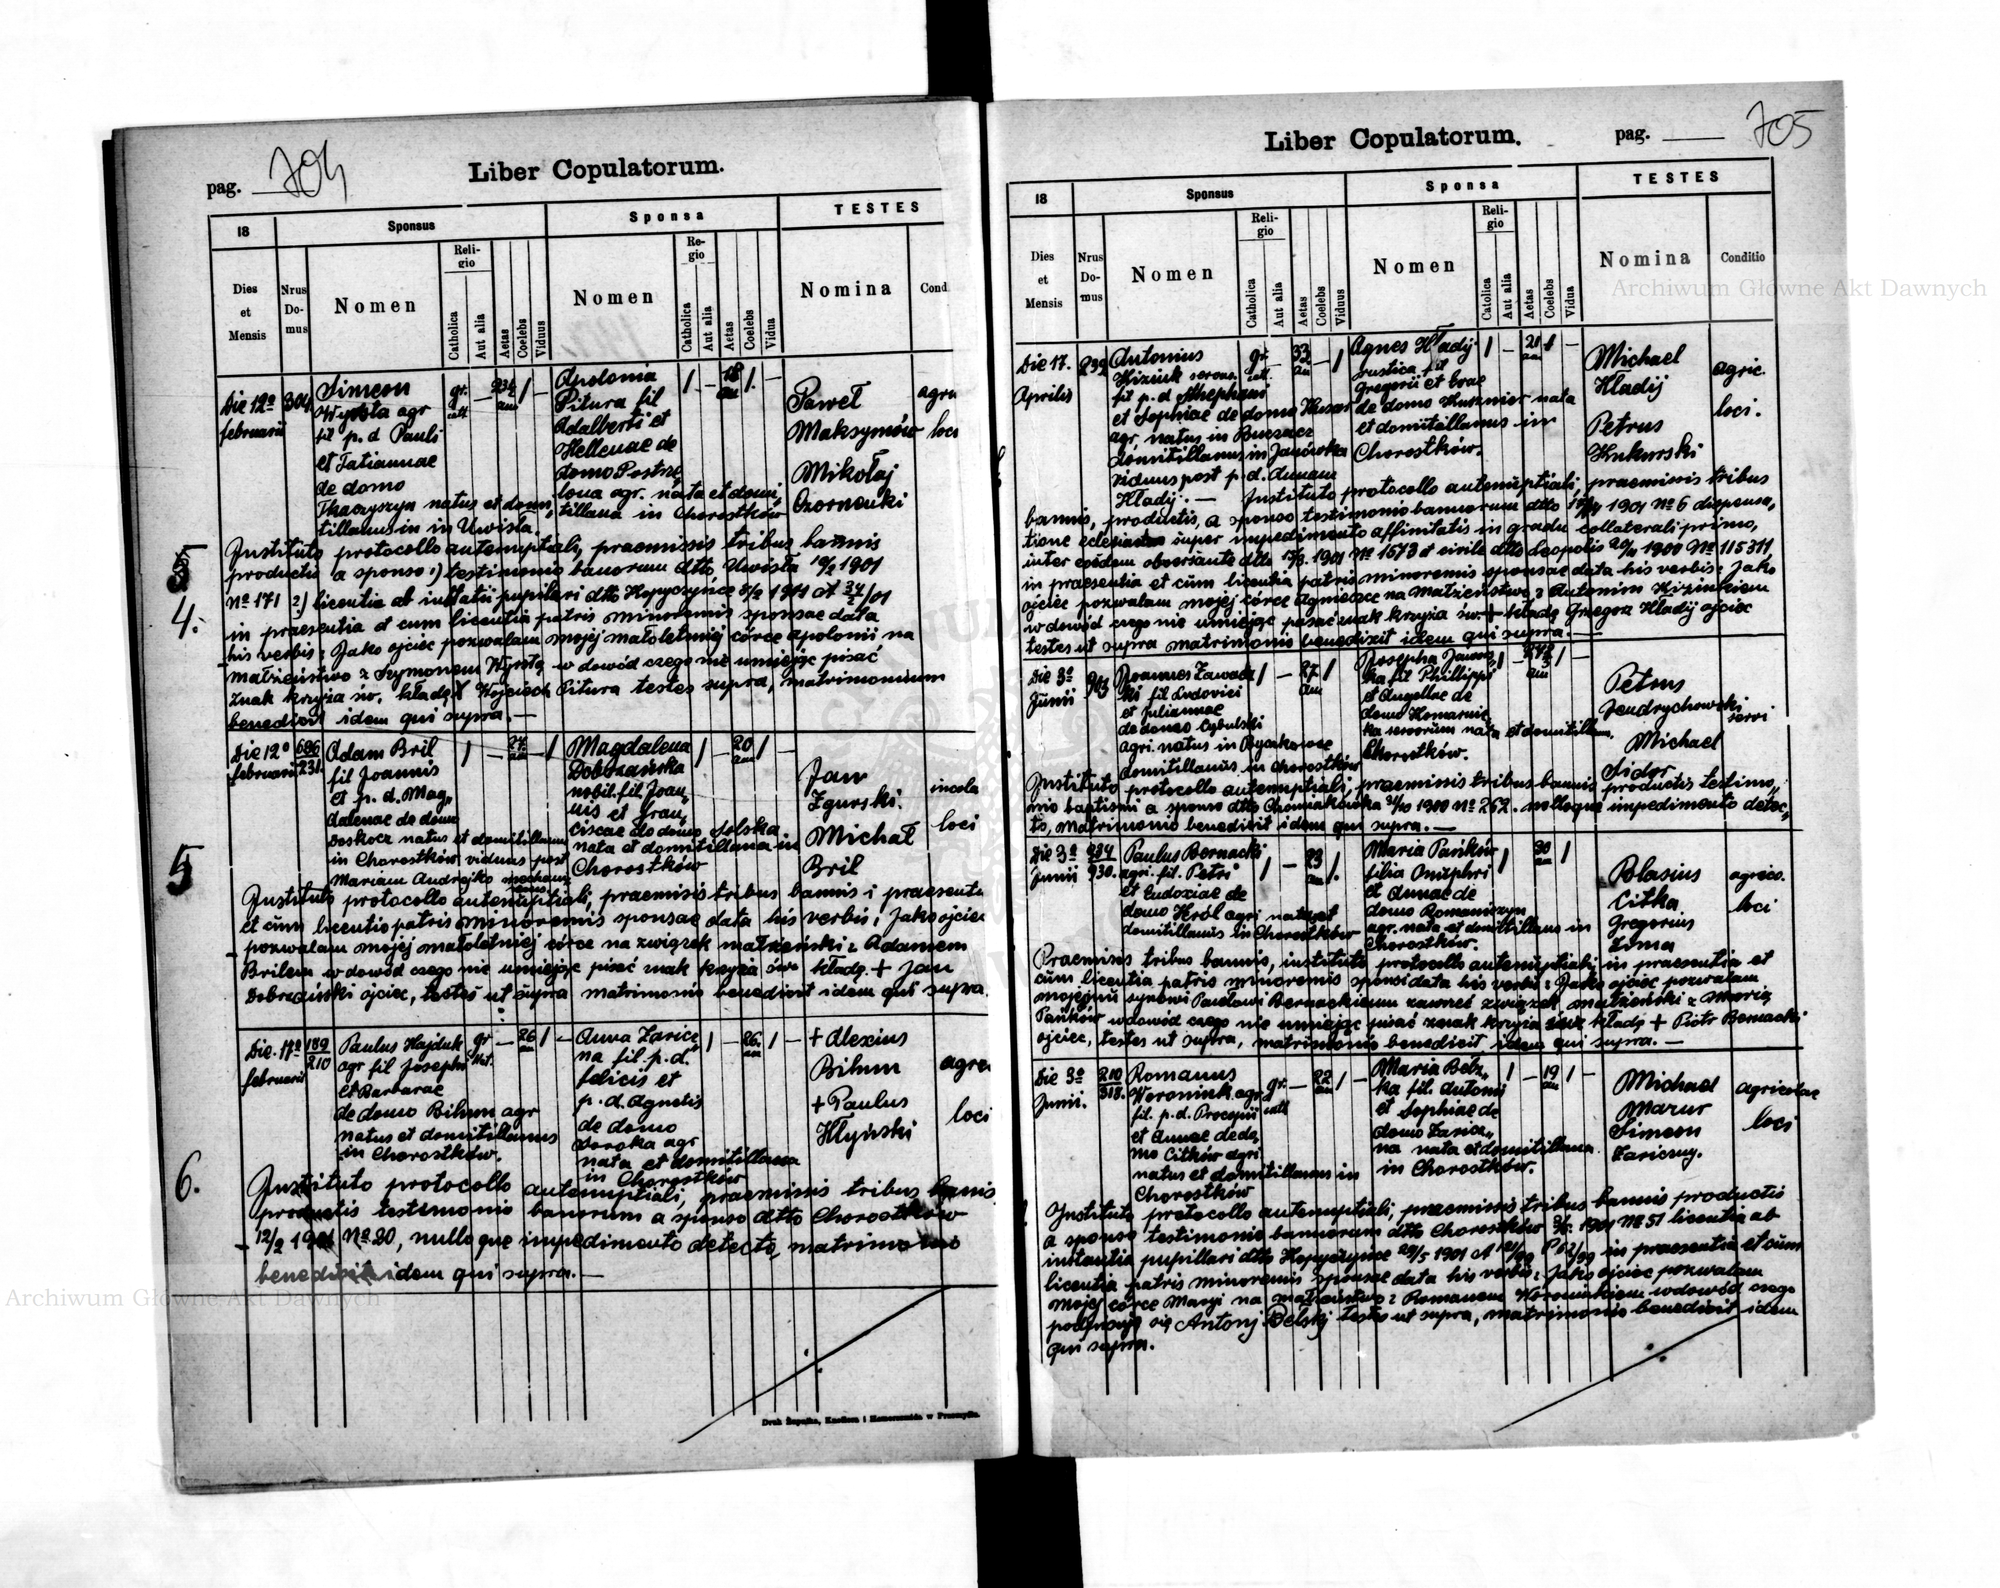 pag. 704
Liber Copulatorum.
18
Sponsus
Sponsa
TESTES
Dies
et
Mensis
Nrus
Do-
mus
Nomen
Reli-
gio
Catholica
Aut alia
Aetas
Coelebs
Viduus
Nomen
Re-
gio
Catholica
Aut alia
Aetas
Coelebs
Vidua
Nomina
Cond
4.
Die 12a
februarii
304
Simeon
Wysta agr
fil p. d Pauli
et Tatiannae
de domo
Tkaczyszyn natus et domi,
tillanus in in Uwisła.
gr.
catt.
Apolonia
Pitura fil
Adalberti et
Hellenae de
domo Postrze,
lona agr. nata et domi,
tillana in Chorostków
18
an
Paweł
Maksymów
Mikołaj
Czornenki
agric
loci
Instituto protocollo antenuptiali, praemissis tribus bannis
productis a sponso 1) testimonio banorum dtto Uwisła 10/2 1901
No 171 2) licentia ab instatii pupilari dtto Kopyczyńce 5/2 1901 A 34/01
in praesentia et cum licentia patris minorennis sponsae data
his verbis: Jako ojciec pozwalam mojej małoletniej córce Apolonii na
małżeństwo z Szymonem Wystą w dowód czego nie umiejąc pisać
znak krzyża św. kładę + Wojciech Pitura testes supra, matrimonium
benedixit idem qui supra. —
5
Die 12a
februarii
696
231
Adam Bril
fil Joannis
et p. d. Mag,
dalenae de domo
Doskocz natus et domitillanus
in Chorostków viduus post
Mariam Andrejko
27
an
Magdalena
Dobrzańska
nobil. fil. Joan,
nis et Fran,
ciscae de domo Solska
nata et domitillana in
Chorostków
20
an
Jan
Zgurski.
Michał
Bril
incola
loci
Instituto protocollo antenuptiali, praemissis tribus bannis i praesentia
et cum licentia patris minorennis sponsae data his verbis: Jako ojciec
pozwalam mojej małoletniej córce na związek małżeński z Adamem
Brilem w dowód czego nie umiejąc pisać znak krzyża św kładę + Jan
Dobrzański ojciec, testes ut supra matrimonio benedixit idem qui supra.
6.
Die. 17a
februarii
189
210
Paulus Hajduk
agr fil Josephi
et Barbarae
de domo Bihun agr
natus et domitillanus
in Chorostków.
gr
cat.
26
an
Anna Zaricz,
na fil. p. d.
Felicis et
p. d. Agnetis
de domo
Soroka agr
nata et domitillana
in Chorostków
26.
an
+ Alexius
Bihun
+ Paulus
Hlyński
agric
loci
Instituto protocollo antenuptiali, praemissis tribus bannis
productis testimonio banorum a sponso dtto Chorostków
12/2 1901 No 20, nulloque impedimento detecto, matrimonio
benedixit idem qui supra. —
Druk Żupnika, Knollera i Hamerszmida w Przemyślu.
Liber Copulatorum.
pag. 705
18
Sponsus
Sponsa
TESTES
Dies
et
Mensis
Nrus
Do-
mus
Nomen
Reli-
gio
Catholica
Aut alia
Aetas
Coelebs
Viduus
Nomen
Reli-
gio
Catolica
Aut alia
Aetas
Coelebs
Vidua
Nomina
Conditio
Die 17.
Aprilis
239
Antonius
Kiziuk
fil p. d Stephani
et Sophiae de domo Husar
agr. natus in Buczacz
domitillanus in Janówka
viduus post p. d. Annam
Hladij. —
gr.
catt.
33
an
Agnes Hładij
rustica fil
Gregorii et Evae
de domo Kusznier nata
et domitillanus in
Chorostków.
21
an
Michael
Hladij
Petrus
Kukurski
agric.
loci.
Instituto protocollo antenuptiali, praemissis tribus
bannis, productis, a sponso testimonio bannorum dtto 1901 No 6 dispensa,
tione eclesiastica super impedimento affinitatis in gradu collaterali primo,
inter eosdem obversante dtto 1901 No 1573 et civile dtto Leopolis 1900 No 115311,
in praesentia et cum licentia patris minorennis sponsae data his verbis: Jako
ojciec pozwalam mojej córce Agnieszce na Małżeństwo z Antonim Kiziukiem
w dowód czego nie umiejąc pisać znak krzyża św. + kładę Grzegorz Hladij ojciec
testes ut supra matrimonio benedixit idem qui supra. —
Die 3a
Junii
Joannes Zawadz
ki fil Ludovici
et Juliannae
de domo Cybulski
agri. natus in Byczkowce
domitillanus in Chorostków
27
an
Josepha Jawors,
ka fil Phillippi
et Angellae de
domo Komarnic
ka servorum nata et domitillan.
Chorostków.
Petrus
Jendrychowski
Michael
Sidor
servi
Instituto protocollo antenuptiali, praemissis tribus bannis, productis testimo,
nio baptismi a sponso dtto Chomiakówka 1900 No 262. nulloque impedimento detec,
to, matrimonio benedixit idem qui supra. —
Die 3a
Junii
234
930.
Paulus Bernacki
agri. fil. Petri
et Eudoxiae de
domo Król agri natus et
domitillanus in Chorostków
23
an
Maria Pańków
filia Onuphri
et Annae de
domo Romaniszyn
agr. nata et domitillans in
Chorostków.
30
an
Blasius
Citka
Gregorius
Zyma
agrico.
loci
Praemissis tribus bannis, instituto protocollo antenuptiali, in praesentia et
cum licentia patris minorennis sponsi data his verbis: Jako ojciec pozwalam
mojemu synowi Pawłowi Bernackiemu zawrzeć związek małżeński z Maria
Pańków w dowód czego nie umiejąc pisać znak krzyża św kładę + Piotr Bernacki
ojciec, testes ut supra, matrimonio benedicit idem qui supra. —
Die 3a
Junii.
210
318.
Romanus
Woroniuk agr.
fil. p. d. Procopii
et Annae de do,
mo Citków agri
natus et domitillanus in
Chorostków
gr.
catt
22
an
Maria Belz,
ka fil. Antoni
et Sophiae de
domo Zaricz,
na nata et domitillana
in Chorostków.
19
an
Michael
Mazur
Simeon
Zariczny.
agricolae
loci
Instituto protocollo antenuptiali, praemissis tribus bannis productis
a sponso testimonio bannorum dtto Chorostków 1901 No 51 licentia ab
instantia pupillari dtto Kopyczyńce 29/5 1901 in praesentia et cum
licentia patris minorennis sponsae data his verbis: Jako ojciec pozwalam
mojej córce Maryi na małżeństwo z Romanem Woroniukiem w dowód czego
podpisuję się Antonj Belskj testes ut supra, matrimonio benedixit idem
qui supra.
Archiwum Główne Akt Dawnych
Archiwum Główne Akt Dawnych